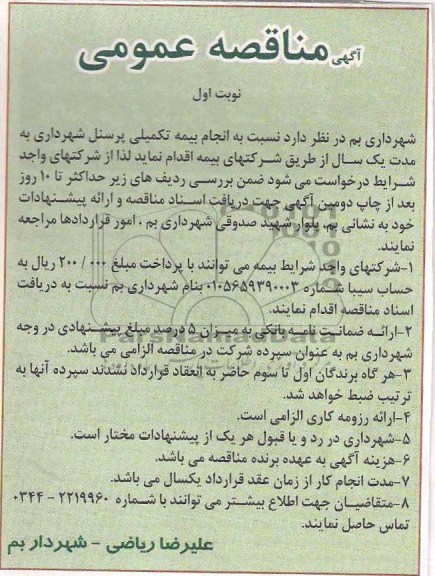 آگهی مناقصه عمومی
نوبت اول
شهرداری بم در نظر دارد نسبت به انجام بیمه تکمیلی پرسنل شهرداری به
مدت یک سال از طریق شرکتهای بیمه اقدام نماید لذا از شرکتهای واجد
شرایط درخواست می شود ضمن بررسی ردیف های زیر حداکثر تا ۱۰ روز
بعد از چاپ دومین آگهی جهت دریافت اسناد مناقصه و ارائه پیشنهادات
خود به نشانی بم، بلوار شهید صدوقی شهرداری بم ، امور قراردادها مراجعه
نمایند.
۱-شرکتهای واجد شرایط بیمه می توانند با پرداخت مبلغ ۲۰۰/۰۰۰ ریال به
حساب سیبا شماره ۰۱۰۵۶۸۵۹۳۹۰۰۳ بنام شهرداری بم نسبت به دریافت
اسناد مناقصه اقدام نمایند.
۲-ارائه ضمانت نامه بانکی به میزان ۵ درصد مبلغ پیشنهادی در وجه
شهرداری بم به عنوان سپرده شرکت در مناقصه الزامی می باشد.
۳-هر گاه برندگان اول تا سوم حاضر به انعقاد قرارداد نشدند سپرده آنها به
ترتیب ضبط خواهد شد.
۴-ارائه رزومه کاری الزامی است.
۵-شهرداری در رد و یا قبول هر یک از پیشنهادات مختار است.
۶-هزینه آگهی به عهده برنده مناقصه می باشد.
۷-مدت انجام کار از زمان عقد قرارداد یکسال می باشد.
۸-متقاضیان جهت اطلاع بیشتر می توانند با شماره ۲۲۱۹۹۶۰ - ۰۳۴۴
تماس حاصل نمایند.
علیرضا ریاضی - شهردار بم